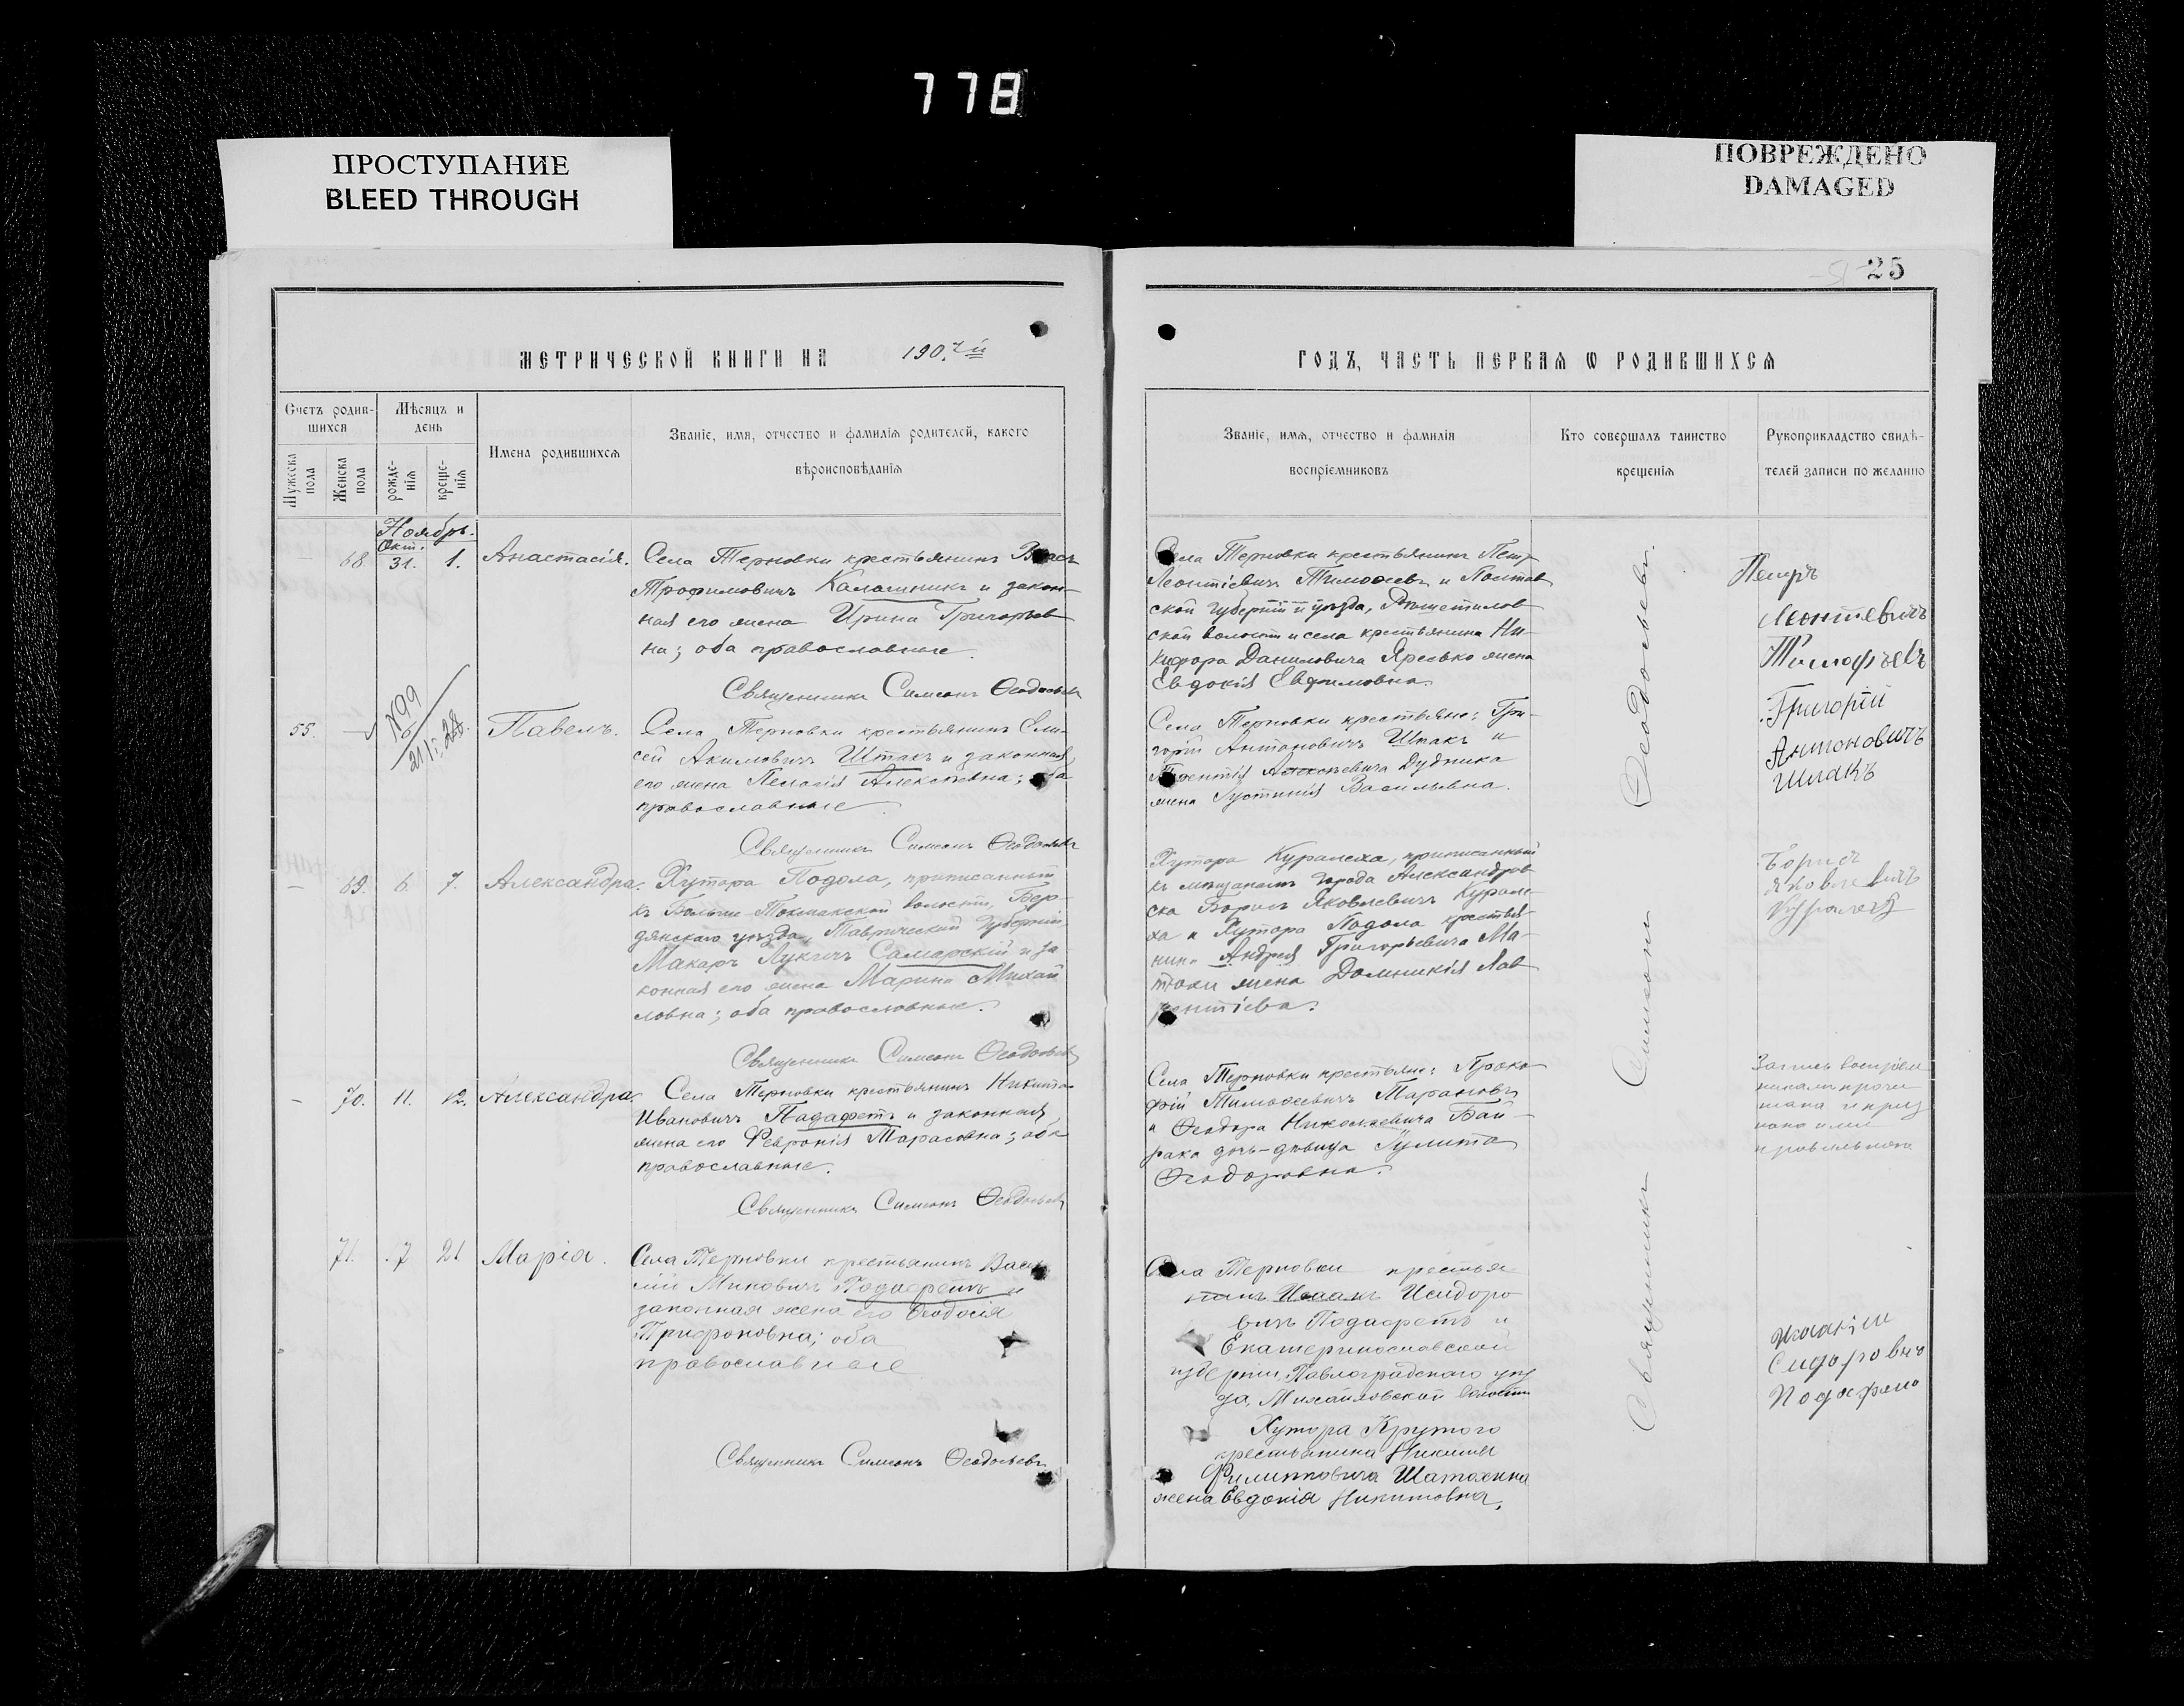 778
ПРОСТУПАНИЕ
BLEED THROUGH
ПОВРЕЖДЕНО
DAMAGED
25
МЕТРИЧЕСКОЙ КНИГИ НА 1907й
ГОДЪ, ЧАСТЬ ПЕРВАЯ Ѡ РОДИВШИХСЯ
Счетъ родив-
шихся
Мужеска
пола
Женска
пола
Мѣсяцъ и
день
рожде-
нія
креще-
нія
Имена родившихся
Званіе, имя, отчество и фамилія родителей, какого
вѣроисповѣданія
Званіе, имя, отчество и фамилія
воспріемниковъ
Кто совершалъ таинство
крещенія
Рукоприкладство свидѣ-
телей записи по желанію
Ноябрь.
Окт.
— 68. 31. 1. Анастасія.
Села Терновки крестьянинъ Власъ
Трофимовичъ Калашникъ и закон-
ная его жена Ирина Григорьев-
на; оба православные.
Священникъ Симеонъ Ѳеодосьевъ
Села Терновки крестьянинъ Петръ
Леонтіевичъ Тимоѳеевъ и Полтав
ской губерніи и уѣзда, Рѣшетилов
ской волости и села крестьянина Ни-
кифора Даниловича Яресько жена
Евдокія Евфимовна.
Петръ
Леонтевичъ
Тимофѣевъ
55. — №99
Павелъ.
Села Терновки крестьянинъ Ели-
сей Акимовичъ Шпакъ и законная
его жена Пелагія Алексѣевна; оба
православные.
Священникъ Симеонъ Ѳеодосьевъ
Села Терновки крестьяне: Гри-
горій Антоновичъ Шпакъ и
Алексѣевича Дудника
жена Іустинія Васильевна.
Григорій
Антоновичъ
Шпакъ
— 69. 6. 7. Александра.
Хутора Подола, приписанный
къ Больше-Токмакской волости, Бер-
дянскаго уѣзда, Таврической губерніи
Макаръ Лукичъ Самарскій и за-
конная его жена Марина Михай
ловна; оба православные.
Священникъ Симеонъ Ѳеодосьевъ
Хутора Куралеха, приписанный
къ мѣщанамъ города Александров
ска Борисъ Яковлевичъ Курале-
ха и Хутора Подола крестья-
нина Андрея Григорьевича Ма-
жена Домникія Лав
рентіева.
Борисъ
Яковлевичъ
— 70. 11. 12. Александра.
Села Терновки крестьянинъ Никита
Ивановичъ Падафетъ и законная
жена его Февронія Тарасовна; оба
православные.
Священникъ Симеонъ Ѳеодосьевъ
Села Терновки крестьяне: Проко-
фій Тимоѳеевичъ Тарановъ
и Ѳеодора Николаевича Бай-
рака дочь-дѣвица Іулитта
Ѳеодоровна.
Запись воспріем
никамъ прочи
тана и приз
нана ими
правильною
71. 17 21 Марія.
Села Терновки крестьянинъ Васи
лій Миновичъ Подафетъ и
законная жена его Ѳеодосія
Трифоновна; оба
православные
Священникъ Симеонъ Ѳеодосьевъ
Села Терновки крестья
нинъ Исаакъ Исидоро
вичъ Подафетъ и
Екатеринославской
губерніи, Павлоградскаго уѣз
да, Михайловской волости
Хутора Крутого
крестьянина Никиты
Филипповича Шатохина
жена Евдокія Никитовна.
Сидоровичъ
Священникъ Симеонъ Ѳеодосьевъ.